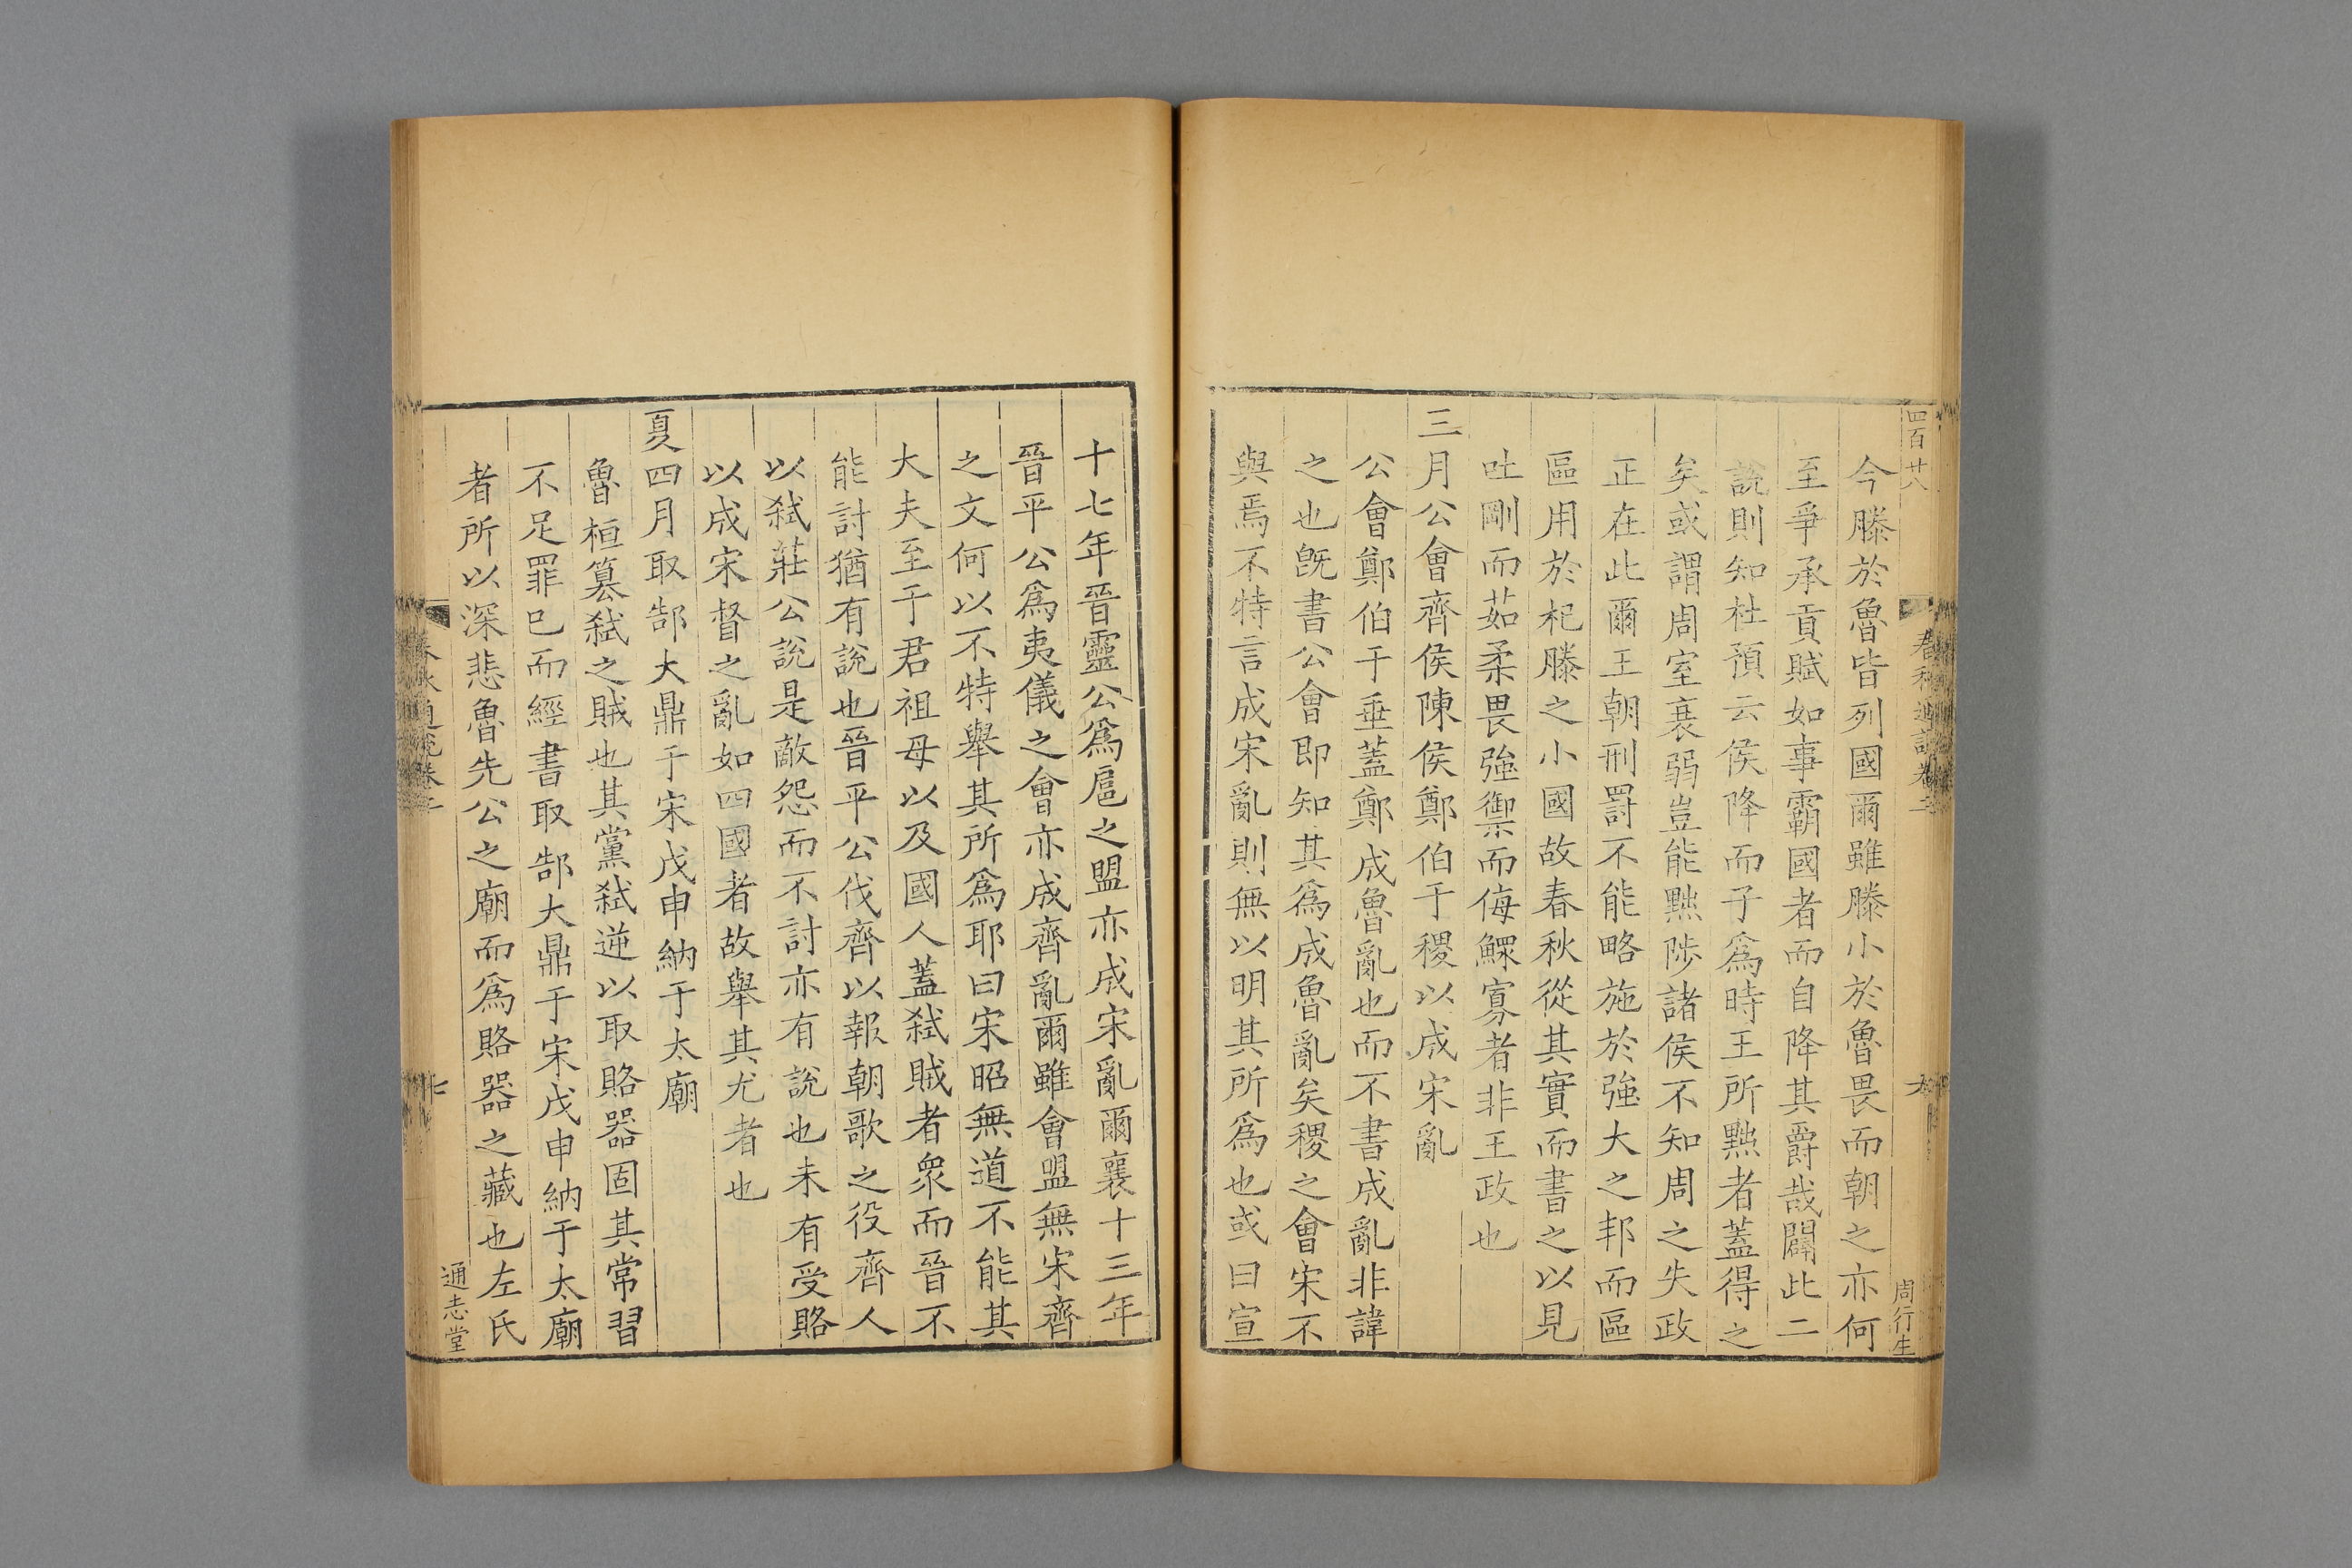 四百廿八
春秋通說卷二
周行生
今滕於魯皆列國爾雖滕小於魯畏而朝之亦何
至爭承貢賦如事霸國者而自降其爵哉闢此二
說則知杜預云侯降而子爲時王所黜者蓋得之
矣或謂周室衰弱豈能黜陟諸侯不知周之失政
正在此爾王朝刑罰不能略施於強大之邦而區
區用於杞滕之小國故春秋從其實而書之以見
吐剛而茹柔畏強禦而侮鰥寡者非王政也
三月公會齊侯陳侯鄭伯于稷以成宋亂
公會鄭伯于垂蓋鄭成魯亂也而不書成亂非諱
之也既書公會即知其爲成魯亂矣稷之會宋不
與焉不特言成宋亂則無以明其所爲也或曰宣
十七年晉靈公爲扈之盟亦成宋亂爾襄十三年
晉平公爲夷儀之會亦成齊亂爾雖會盟無宋齊
之文何以不特舉其所爲耶曰宋昭無道不能其
大夫至于君祖母以及國人蓋弒賊者衆而晉不
能討猶有說也晉平公伐齊以報朝歌之役齊人
以弒莊公說是敵怨而不討亦有說也未有受賂
以成宋督之亂如四國者故舉其尤者也
夏四月取郜大鼎于宋戊申納于太廟
魯桓簒弒之賊也其黨弒逆以取賂器固其常習
不足罪已而經書取郜大鼎于宋戊申納于太廟
者所以深悲魯先公之廟而爲賂器之藏也左氏
春秋通說卷二
通志堂